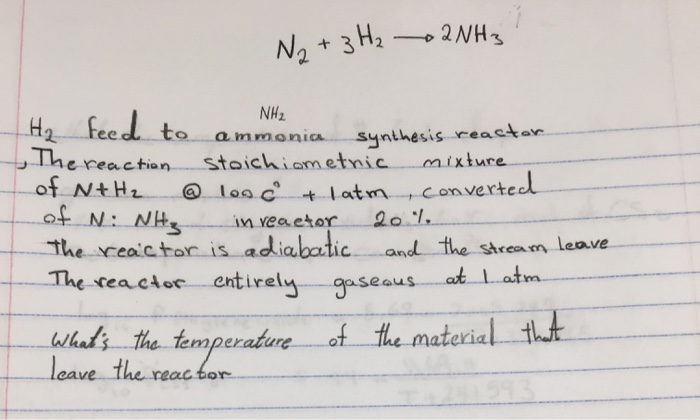 N₂ + 3H₂ → 2NH₃
NH₂
H₂ feed to ammonia synthesis reactor
, The reaction stoichiometric mixture
of N+H₂ @ 100 c° + 1 atm , converted
of N: NH₃ in reactor 20 %.
The reaictor is adiabatic and the stream leave
The reactor entirely gaseous at 1 atm
What's the temperature of the material that
leave the reactor